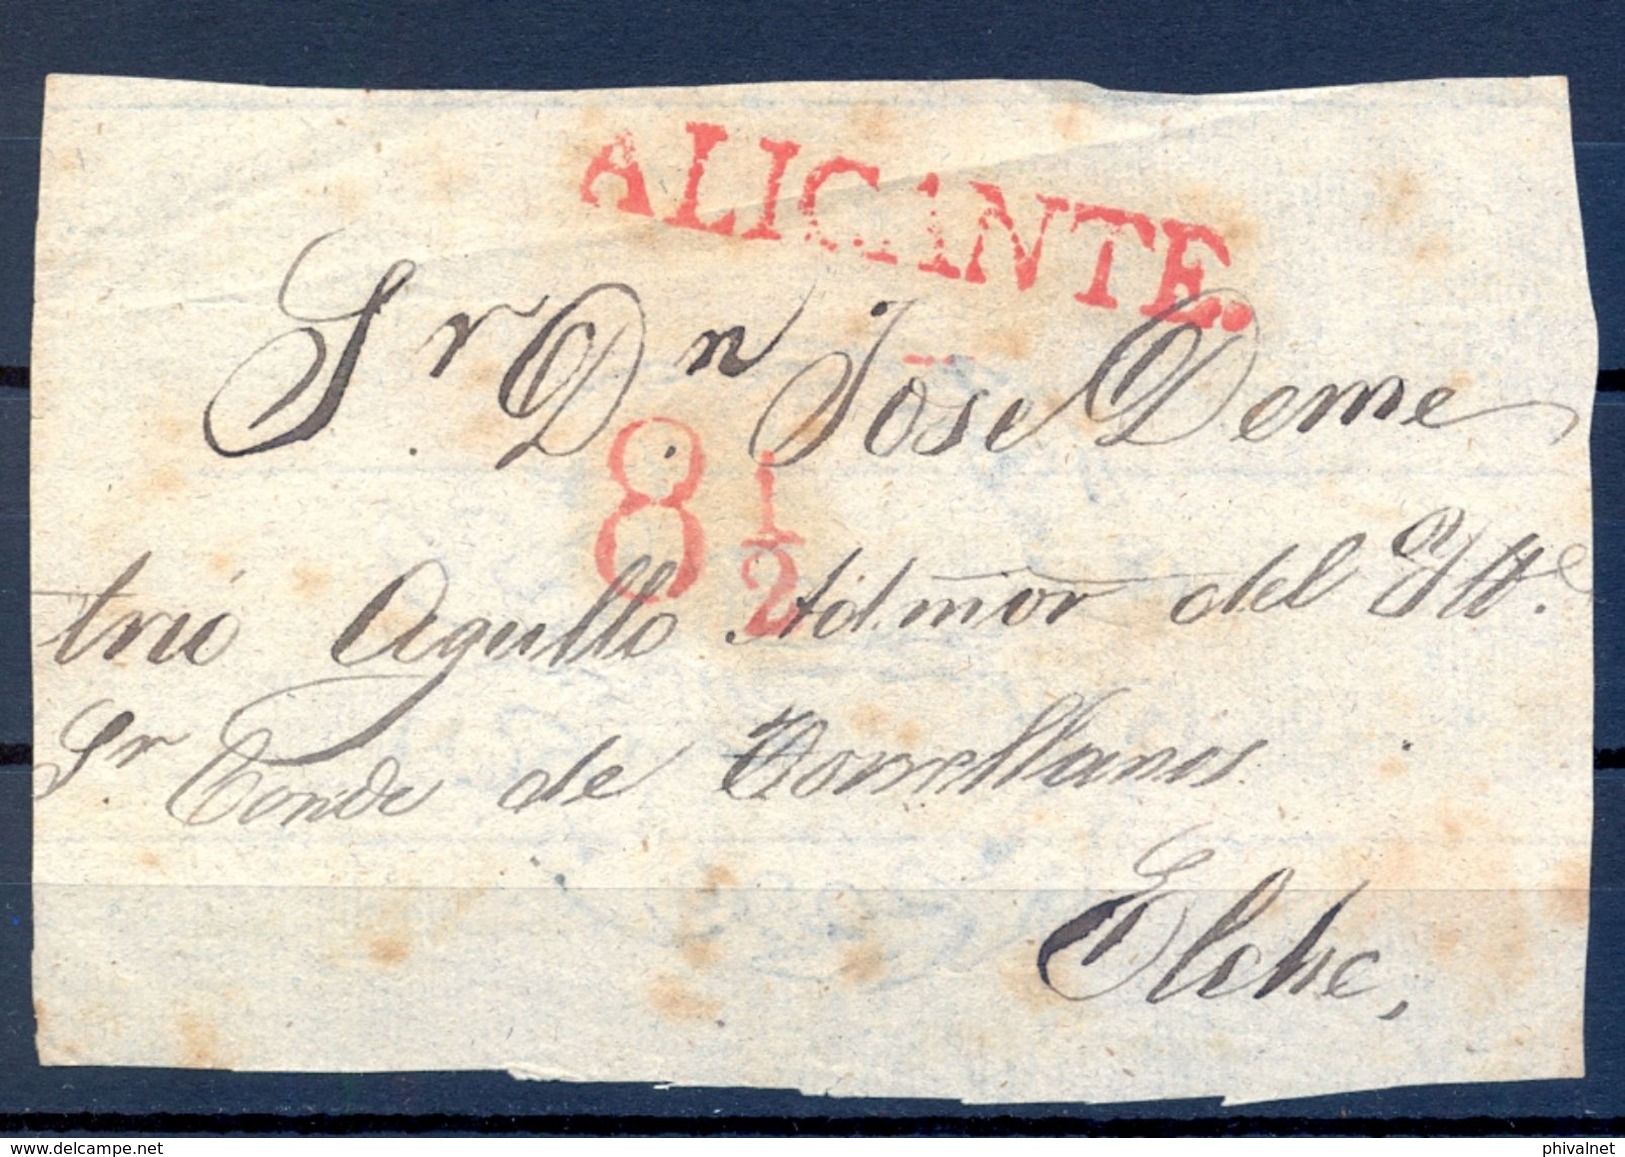 ALICANTE.
Sr. Dn Jose Deme
8 1/2
trio Agullo Admor del Ytt.e
Sr Conde de Torrellanos
Elche,
delcampe.net
phivalnet